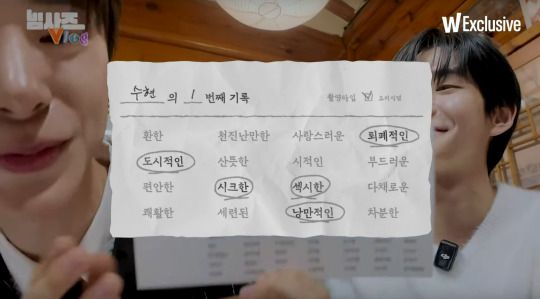 빔사즈
Vlog
W Exclusive
수현 의 1 번째 기록
촬영타입 오리지널
환한 천진난만한 사랑스러운 퇴폐적인
도시적인 산뜻한 시적인 부드러운
편안한 시크한 섹시한 다채로운
쾌활한 세련된 낭만적인 차분한